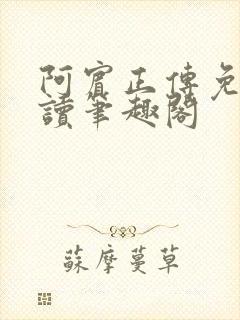 阿賓正傳免
讀筆趣閣
蘇摩蔓草